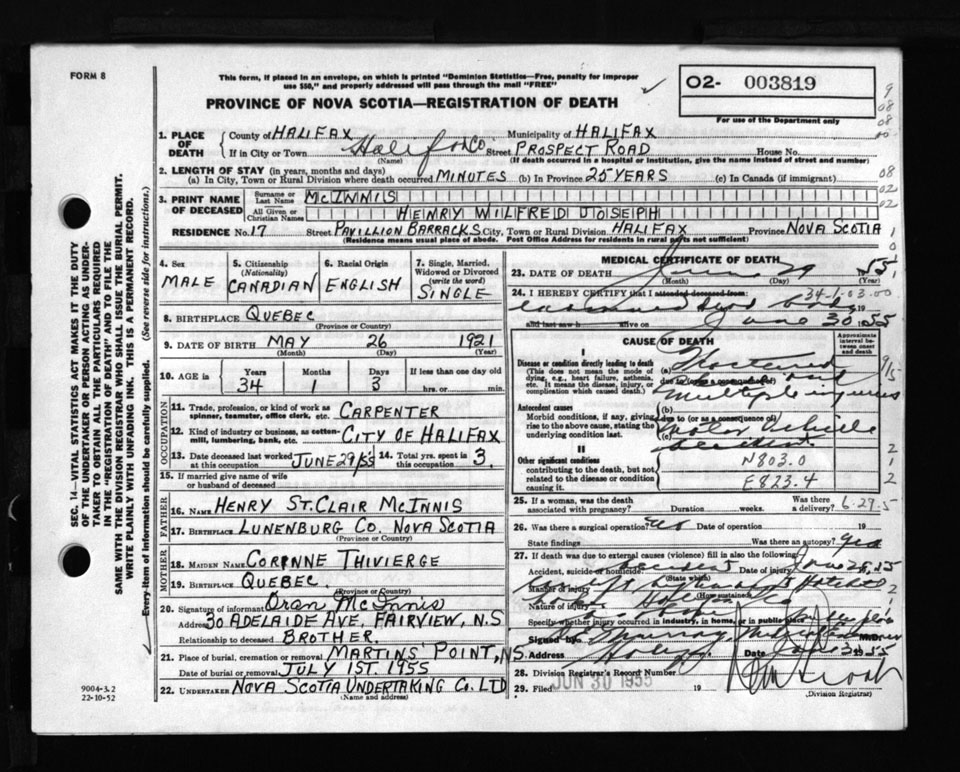 FORM 8
This form, if placed in an envelope, on which is printed "Dominion Statistics—Free, penalty for improper
use $50," and properly addressed will pass through the mail "FREE"
PROVINCE OF NOVA SCOTIA—REGISTRATION OF DEATH
O2- 003819
For use of the Department only
SEC. 14—VITAL STATISTICS ACT MAKES IT THE DUTY
OF THE UNDERTAKER OR PERSON ACTING AS UNDER-
TAKER TO OBTAIN ALL THE PARTICULARS REQUIRED
IN THE "REGISTRATION OF DEATH" AND TO FILE THE
SAME WITH THE DIVISION REGISTRAR WHO SHALL ISSUE THE BURIAL PERMIT.
WRITE PLAINLY WITH UNFADING INK. THIS IS A PERMANENT RECORD.
Every item of information should be carefully supplied. (See reverse side for instructions.)
1. PLACE OF DEATH
County of HALIFAX Municipality of HALIFAX
If in City or Town Halifax Co. Street PROSPECT ROAD House No.
(Name) (If death occurred in a hospital or institution, give the name instead of street and number)
2. LENGTH OF STAY (in years, months and days)
(a) In City, Town or Rural Division where death occurred MINUTES (b) In Province 25 YEARS (c) In Canada (if immigrant)
3. PRINT NAME OF DECEASED
Surname or Last Name MCINNIS
All Given or Christian Names HENRY WILFRED JOSEPH
RESIDENCE No. 17 Street PAVILLION BARRACKS City, Town or Rural Division HALIFAX Province NOVA SCOTIA
(Residence means usual place of abode. Post Office Address for residents in rural parts not sufficient)
4. Sex MALE
5. Citizenship (Nationality) CANADIAN
6. Racial Origin ENGLISH
7. Single, Married, Widowed or Divorced (write the word) SINGLE
8. BIRTHPLACE QUEBEC
(Province or Country)
9. DATE OF BIRTH MAY 26 1921
(Month) (Day) (Year)
10. AGE in Years 34 Months 1 Days 3 If less than one day old hrs. or min.
OCCUPATION
11. Trade, profession or kind of work as spinner, teamster, office clerk, etc. CARPENTER
12. Kind of industry or business, as cotton-mill, lumbering, bank, etc. CITY OF HALIFAX
13. Date deceased last worked at this occupation JUNE 29/55 14. Total yrs. spent in this occupation 3.
15. If married give name of wife or husband of deceased
FATHER
16. Name HENRY ST. CLAIR MCINNIS
17. Birthplace LUNENBURG CO. NOVA SCOTIA
(Province or Country)
MOTHER
18. MAIDEN NAME CORINNE THIVIERGE
19. BIRTHPLACE QUEBEC.
(Province or Country)
20. Signature of informant Oran McInnis
Address 30 ADELAIDE AVE, FAIRVIEW, N.S
Relationship to deceased BROTHER.
21. Place of burial, cremation or removal MARTINS POINT, N.S.
Date of burial or removal JULY 1ST. 1955
22. UNDERTAKER NOVA SCOTIA UNDERTAKING CO. LTD
(Name and address)
9004-3.2
22-10-52
MEDICAL CERTIFICATE OF DEATH
23. DATE OF DEATH June 29 1955
(Month) (Day)
34-1-03.00
24. I HEREBY CERTIFY that I attended deceased from:
examined dead body 19
and last saw h alive on June 30 1955
CAUSE OF DEATH
Approximate interval between onset and death
I
Disease or condition directly leading to death
(This does not mean the mode of dying, e.g., heart failure, asthenia, etc. It means the disease, injury, or complication which caused death.)
(a) Fractured
due to (or as a consequence of)
multiple injuries
Antecedent causes
Morbid conditions, if any, giving rise to the above cause, stating the underlying condition last.
(b)
due to (or as a consequence of)
(c) motor vehicle
accident
II
Other significant conditions
contributing to the death, but not related to the disease or condition causing it.
N803.0
E823.4
25. If a woman, was the death associated with pregnancy? Duration weeks. Was there a delivery?
6-27-5
26. Was there a surgical operation? no Date of operation 19
State findings Was there an autopsy? yes
27. If death was due to external causes (violence) fill in also the following
Accident, suicide or homicide? Accident Date of injury June 29, 55
(State which)
Manner of injury
(How sustained)
Nature of injury
Specify whether injury occurred in industry, in home, or in public place
Signed by M.D.
Address Halifax Date June 30 55
28. Division Registrar's Record Number
29. Filed JUN 30 1955 19
(Division Registrar)